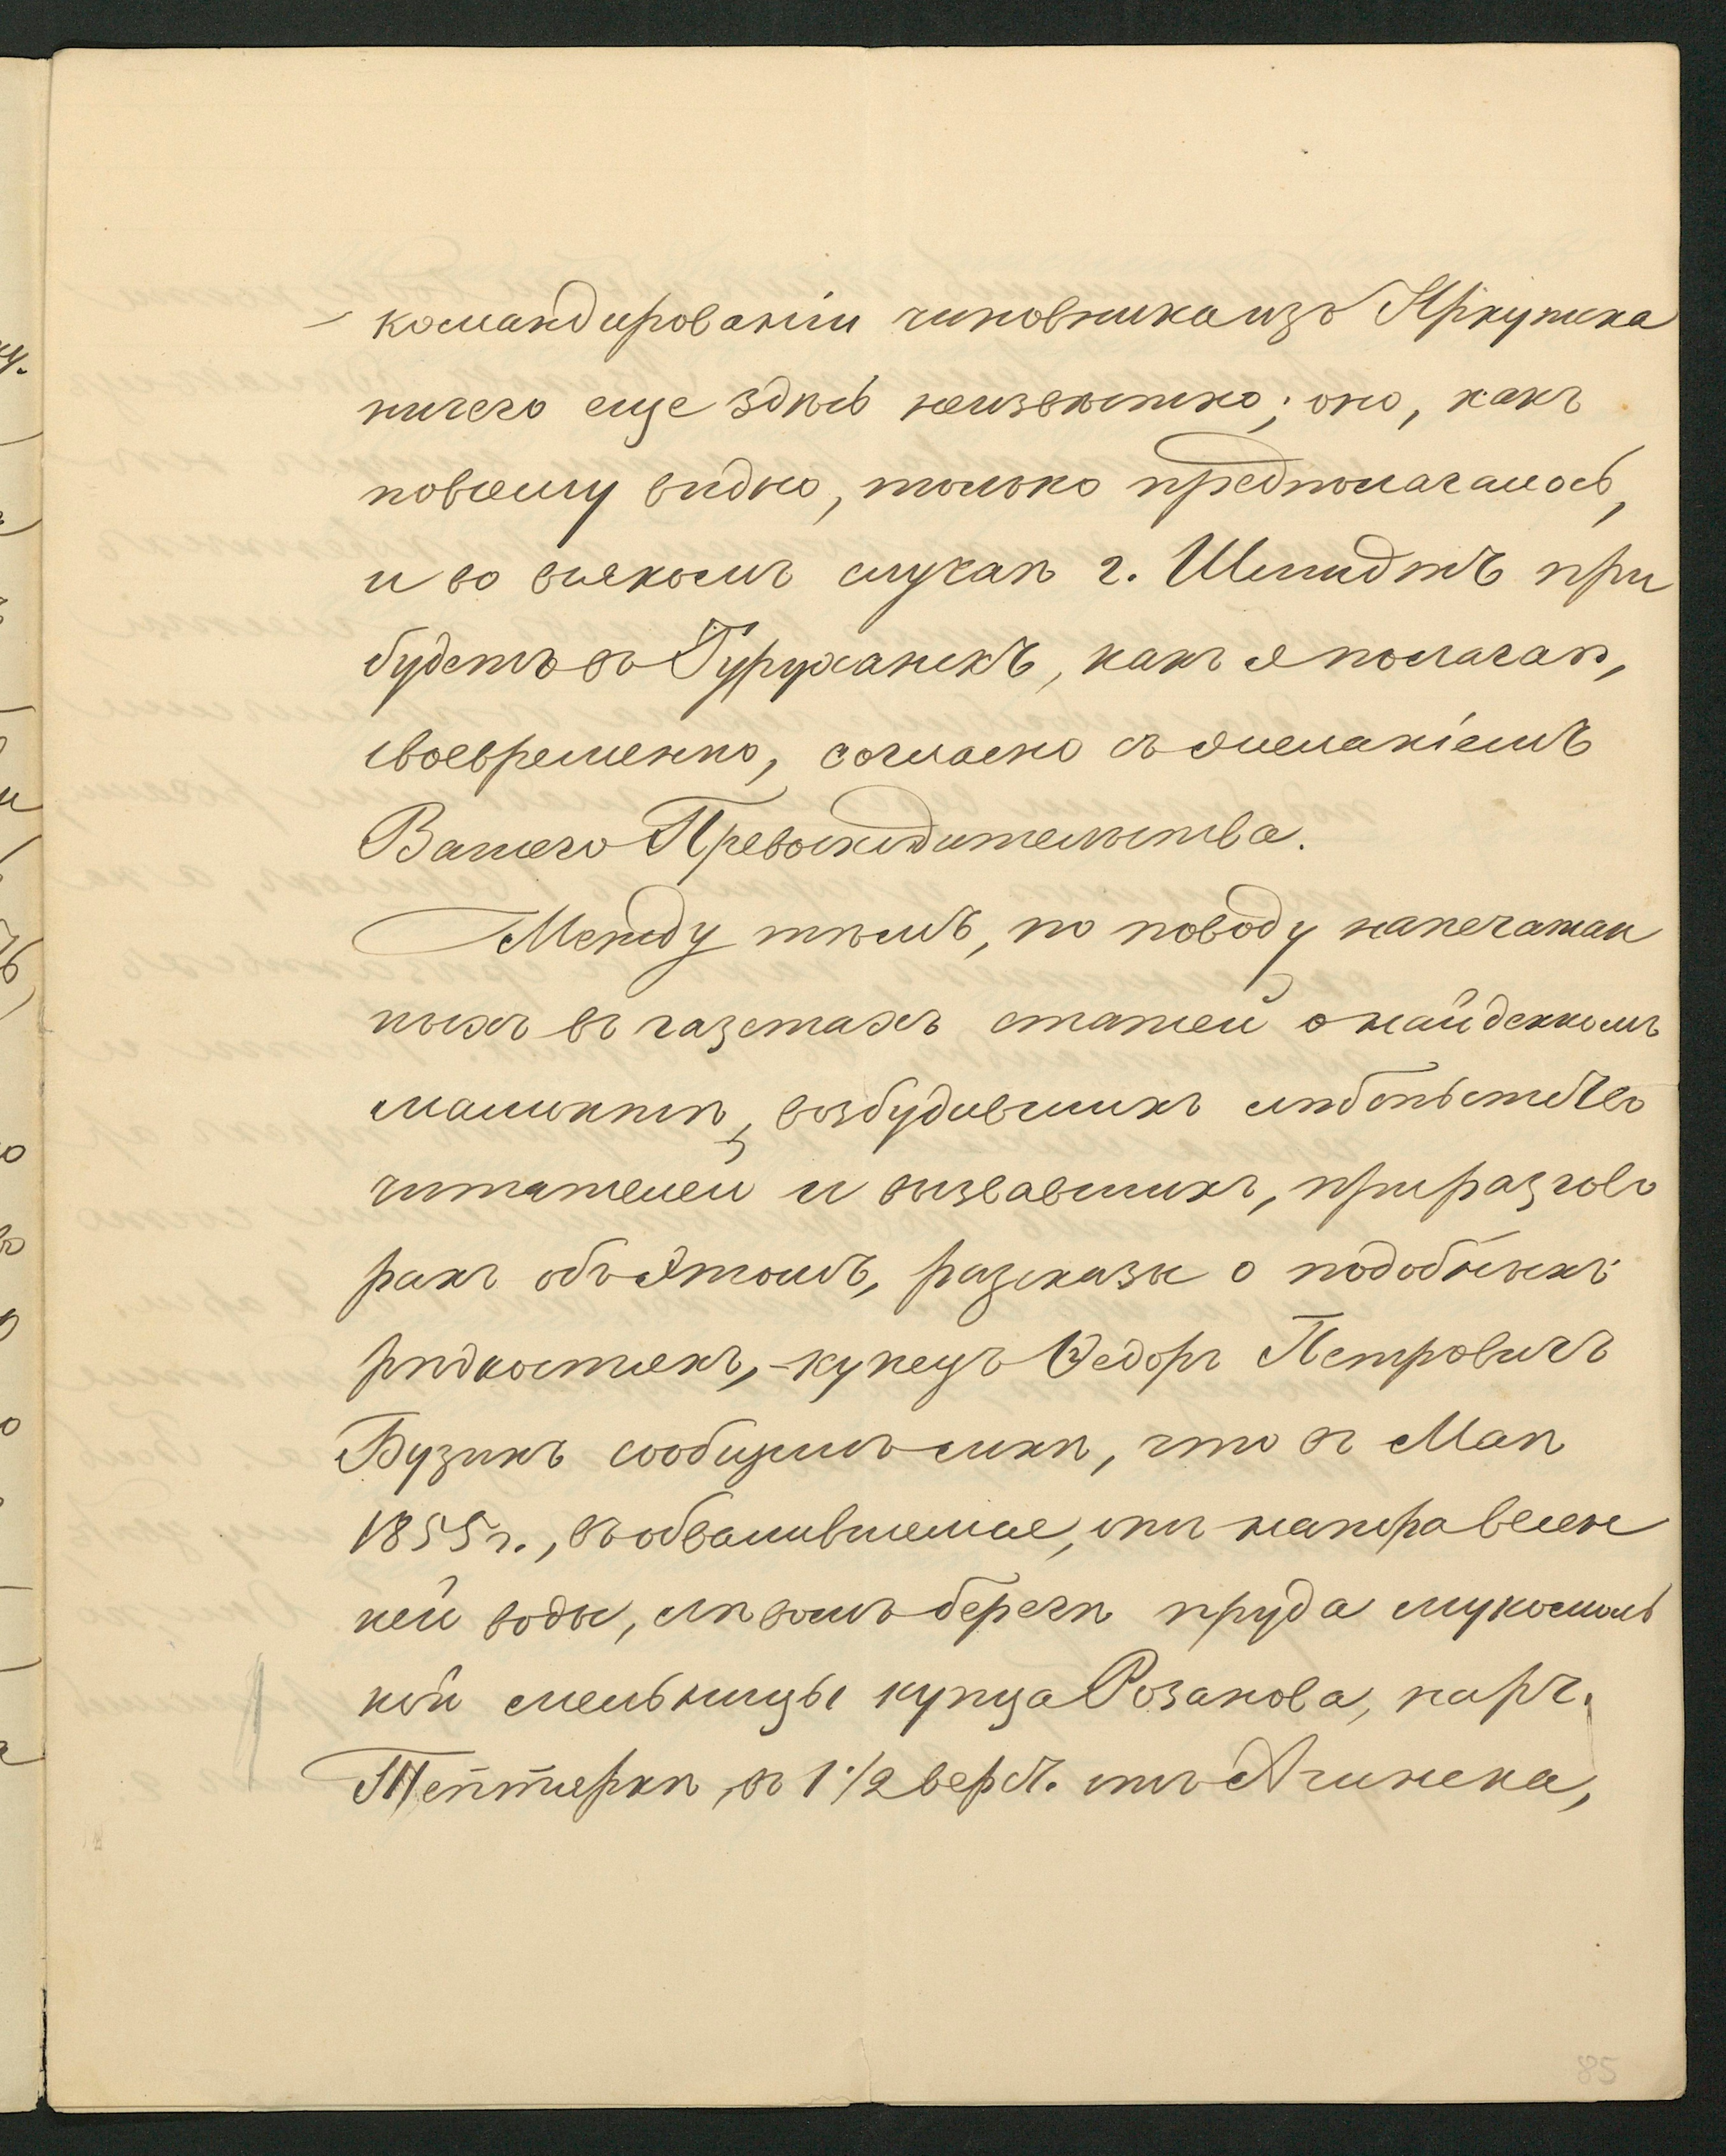 командированіи чиновника изъ Иркутска
ничего еще здѣсь неизвѣстно; оно, какъ
повсему видно, только предполагалось,
и во всякомъ случаѣ г. Шмидтъ при
будетъ въ Туруханскъ, какъ я полагаю,
своевременно, согласно съ желаніемъ
Вашего Превосходительства.
Между тѣмъ, по поводу напечатан
ныхъ въ газетахъ статей о найденномъ
мамонтѣ, возбудившихъ любопытство
читателей и вызвавшихъ, при разгово
рахъ объ этомъ, разсказы о подобныхъ
рѣдкостяхъ,-купецъ Ѳедоръ Петровичъ
Бузинъ сообщилъ мнѣ, что въ Маѣ
1855 г., въ обвалившемся, отъ напора весен
ней воды, лѣвомъ берегѣ пруда мукомоль
ной мельницы купца Розанова, на рч.
Тептяркѣ, въ 1 1/2 верст. отъ Ачинска,
85